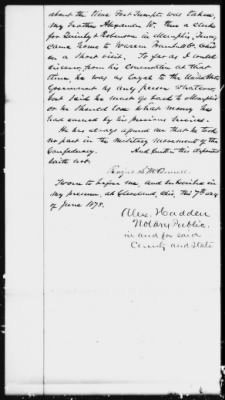 about the time Fort Sumpter was taken,
my brother Alexander W. then a clerk
for Quimby & Robinson in Memphis, Tenn,
came home to Warren Trumbull Co. Ohio
on a short visit. So far as I could
discern from his conversation at that
time, he was as loyal to the United States
Government as any person whatever,
but said he must go back to Memphis
or he should lose what money he
had earned by his previous services.
He has always assured me that he took
no part in the military movement of the
Confederacy. And further this deponent
saith not.
Sworn to before me and subscribed in
my presence, at Cleveland, Ohio, this 7th day
of June 1878.
Alex. Hadden
Notary Public.
in and for said
County and State